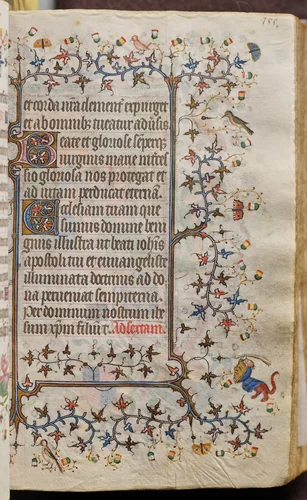 et corda nr̃a clement̾ expurget
et ab omnib; tueatur aduˀsis
Beate et gloriose sẽperq;
uirginis marie int̾ces
sio gloriosa nos protegat et
ad uitam perducat et̾nã.
Ecclesiam tuam que
sumus domine beni
gnus illustra ut beati ioh̃is
apostoli tui et euuangeliste
illuminata doctrinis ad do
na perueniat sempiterna.
Per dominum nostrum ihe
sum xp̃m filiũ t̃. Ad sextam.